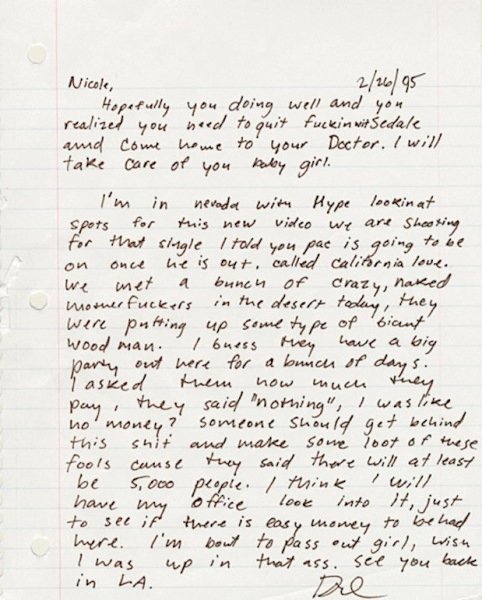 Nicole, 2/26/95
Hopefully you doing well and you
realized you need to quit fuckin wit Sedale
and come home to your Doctor. I will
take care of you baby girl.
I'm in nevada with Hype lookin at
spots for this new video we are shooting
for that single I told you pac is going to be
on once he is out, called California love.
We met a bunch of crazy, naked
motherfuckers in the desert today, they
were putting up some type of Giant
wood man. I Guess they have a big
party out here for a bunch of days.
I asked them how much they
pay, they said "nothing", I was like
no money? Someone should get behind
this shit and make some loot of these
fools cause they said there will at least
be 5,000 people. I think I will
have my office look into it, just
to see if there is easy money to be had
here. I'm bout to pass out girl, wish
I was up in that ass. See you back
in LA.
Dre